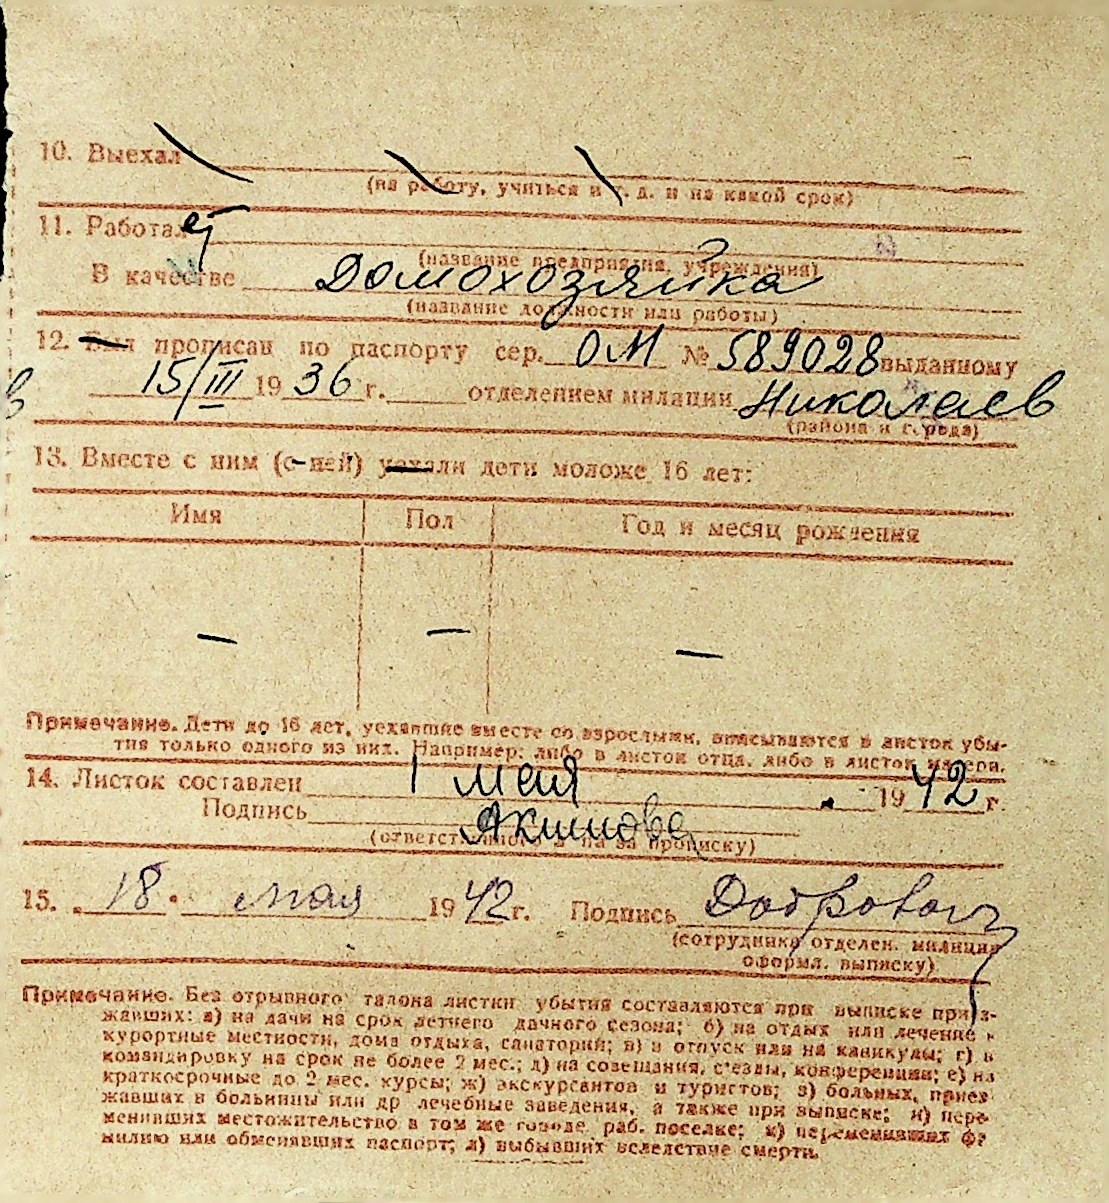 10. Выехал
(на работу, учиться и т. д. и на какой срок)
11. Работал
(название предприятия, учреждения)
В качестве Домохозяйка
(название должности или работы)
12. Был прописан по паспорту сер. ОМ № 589028 выданному
15/III 1936 г. отделением милиции Николаев
(района и города)
13. Вместе с ним (с ней) уехали дети моложе 16 лет:
Имя Пол Год и месяц рождения
— — —
Примечание. Дети до 16 лет, уехавшие вместе со взрослыми, вписываются в листок убы-
тия только одного из них. Например: либо в листок отца, либо в листок матери.
14. Листок составлен 1 мая 1942 г.
Подпись Акимова
(ответственного за прописку)
15. 18 мая 1942 г. Подпись
(сотрудника отделен. милиции
оформл. выписку)
Примечание. Без отрывного талона листки убытия составляются при выписке приез-
жавших: а) на дачи на срок летнего дачного сезона; б) на отдых или лечение в
курортные местности, дома отдыха, санатории; в) в отпуск или на каникулы; г) в
командировку на срок не более 2 мес.; д) на совещания, съезды, конференции; е) на
краткосрочные до 2 мес. курсы; ж) экскурсантов и туристов; з) больных, приез-
жавших в больницы или др лечебные заведения, а также при выписке; и) пере-
менивших местожительство в том же городе, раб. поселке; к) переменивших фа
милию или обменявших паспорт; л) выбывших вследствие смерти.